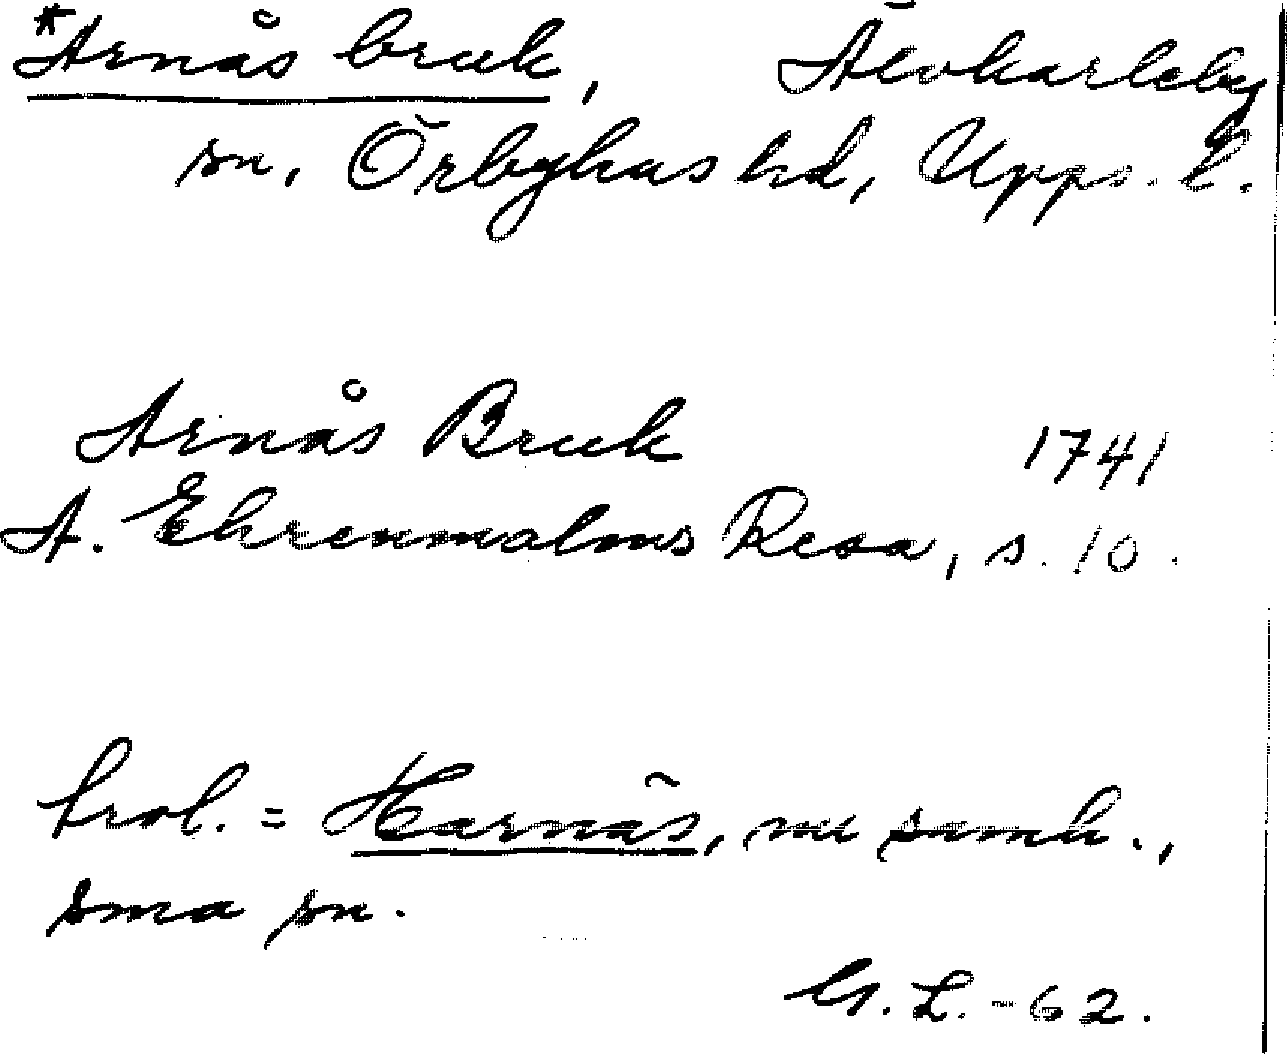 *Arnås bruk, Älvkarleby
sn, Örbyhus hd, Upps. l.
Arnås Bruk 1741
A. Ehrenmalms Resa, s. 10.
trol. = Harnäs, nu samh.,
sma sn.
G. L. -62.